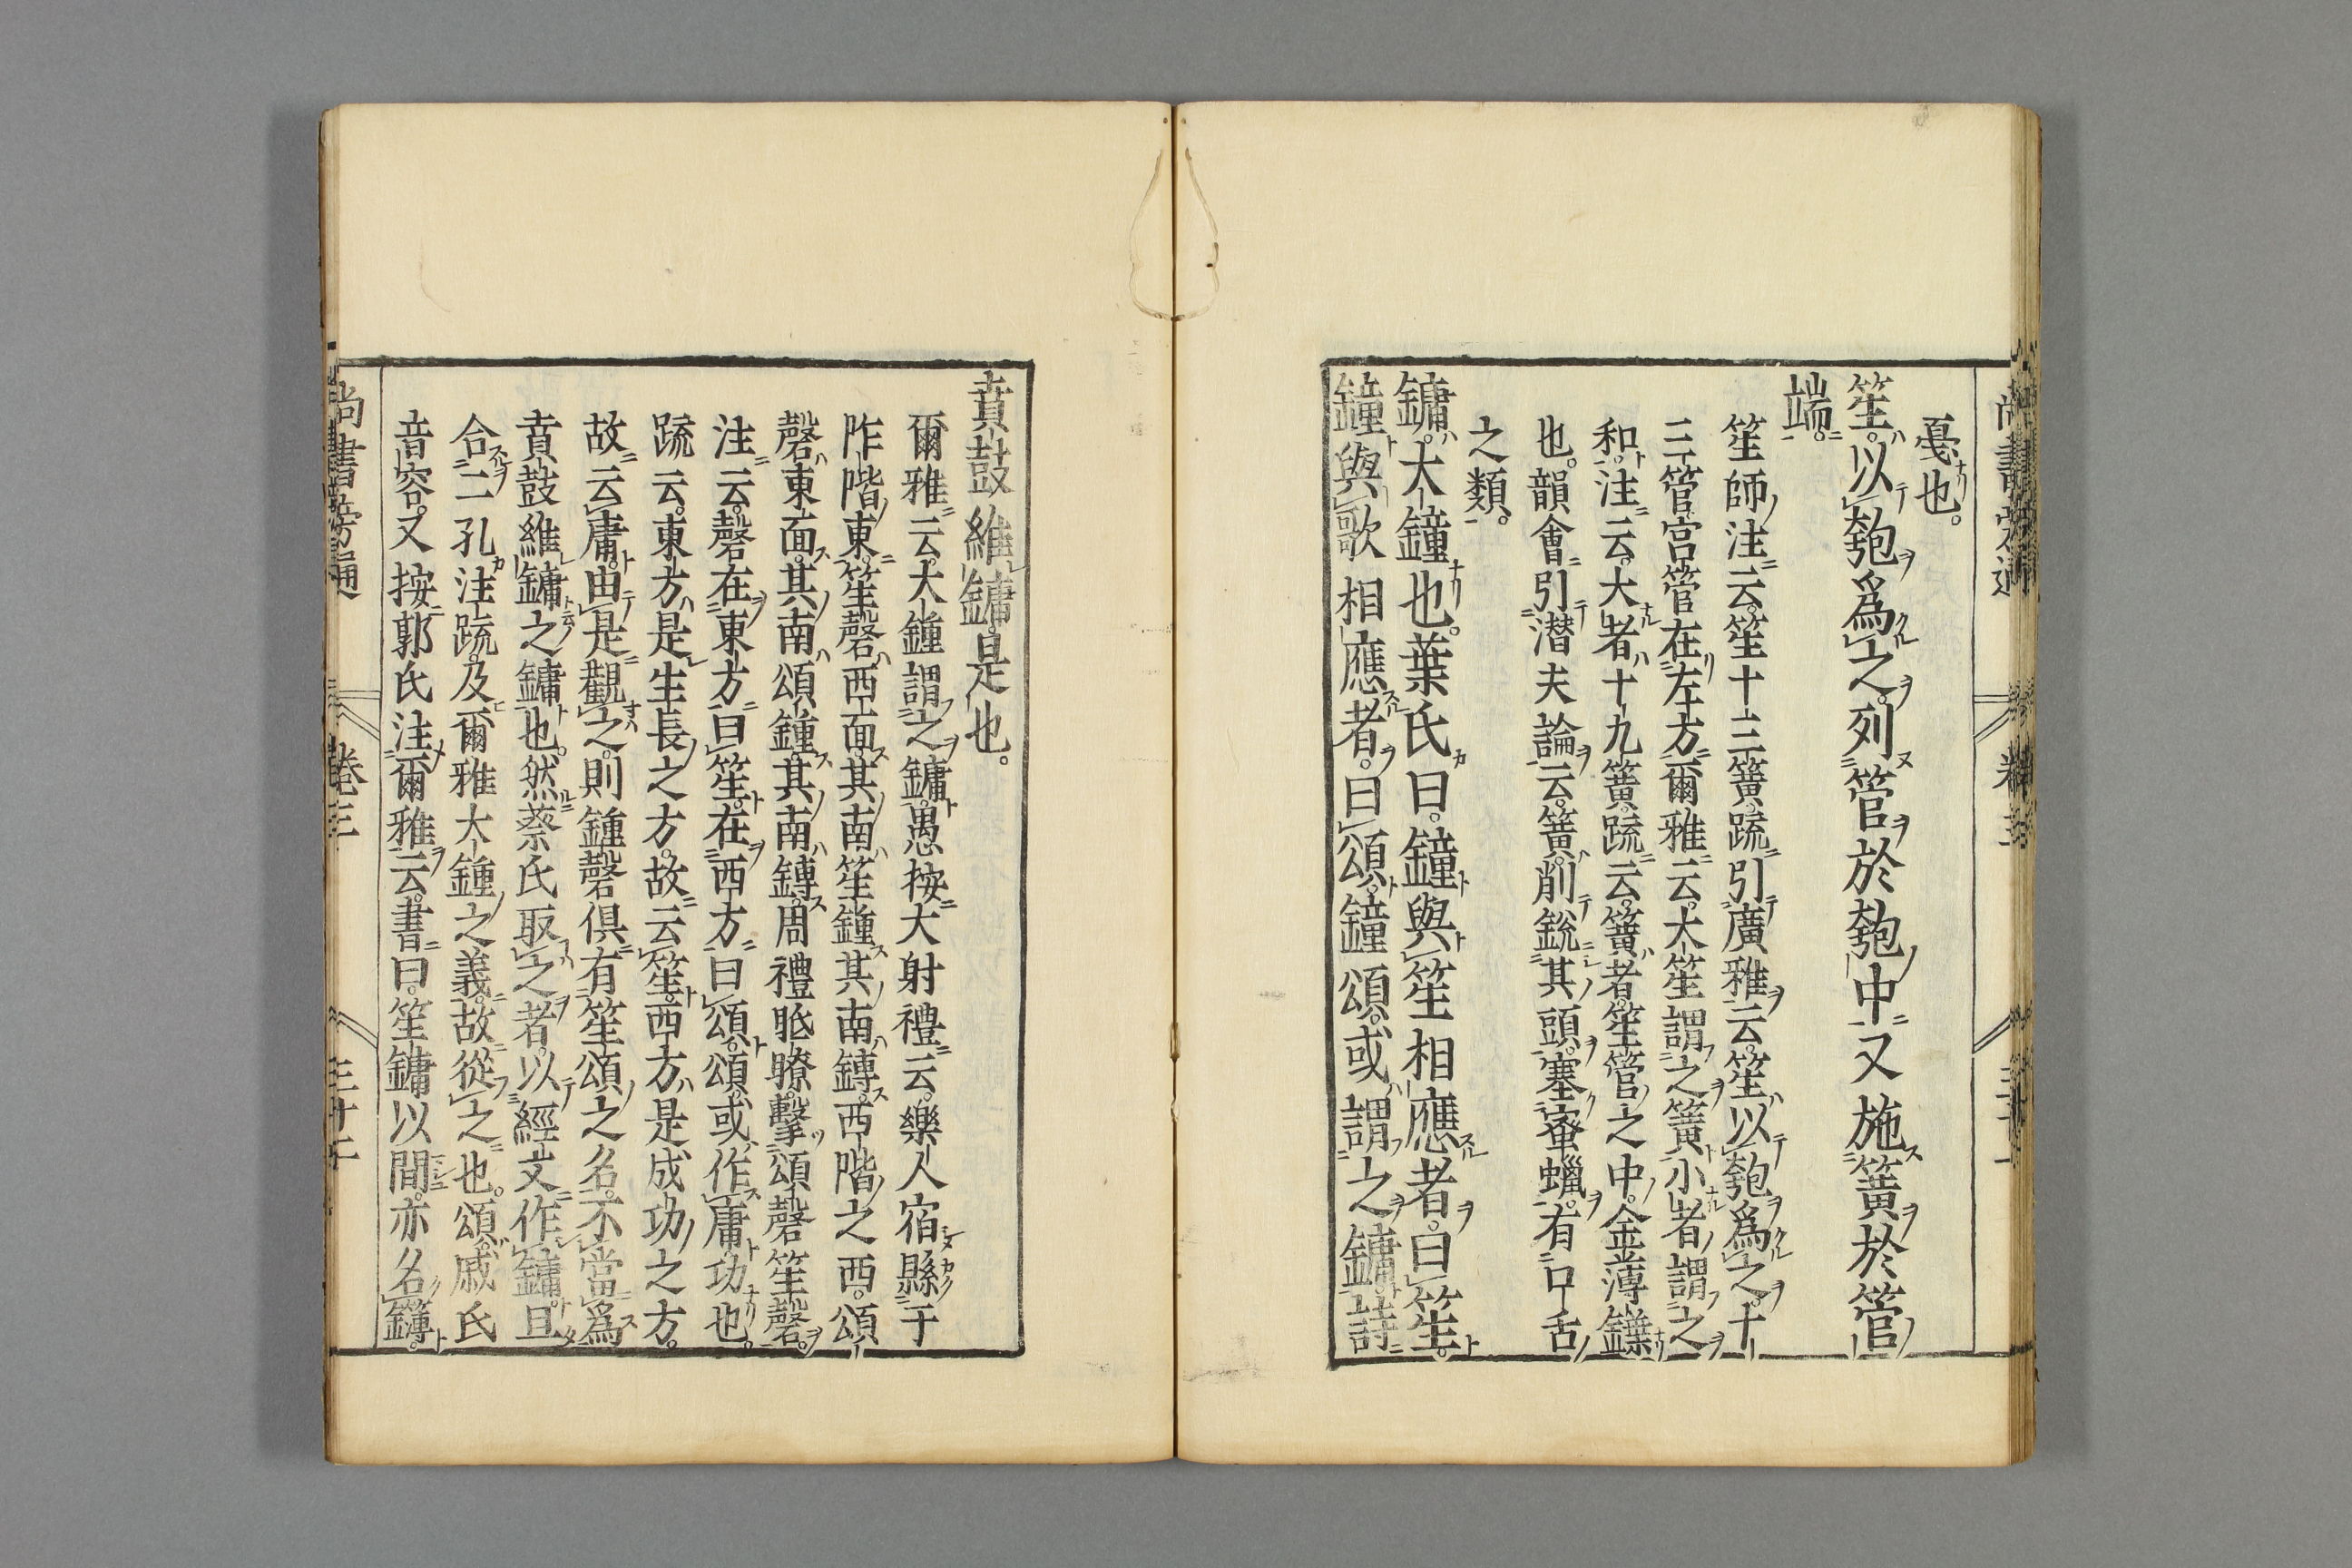 戞也。
笙。以匏爲之。列管於匏中又施簧於管
端。
笙師注云。笙十三簧。疏引廣雅云。笙以匏爲之。十
三管宮管在左方。爾雅云。大笙謂之簧小者謂之
和。注云。大者十九簧。疏云。簧者。笙管之中。金薄鐷
也。韻會引潜夫論云。簧。削銳其頭。塞蜜蠟。有口舌
之類。
鏞。大鐘也。葉氏曰。鐘與笙相應者。曰笙。
鐘與歌相應者。曰頌。鐘頌。或謂之鏞。詩
賁鼓維鏞。是也。
爾雅云。大鍾謂之鏞。愚按大射禮云。樂人宿縣于
阼階東。笙磬西面。其南笙鍾其南鏄。西階之西。頌
磬東面。其南頌鍾。其南鏄。周禮眡瞭。擊頌磬笙磬。
注云。磬在東方曰笙。在西方曰頌。頌。或作庸功也。
疏云。東方是生長之方。故云笙。西方是成功之方。
故云庸。由是觀之。則鍾磬俱有笙頌之名。不當爲
賁鼓維鏞之鏞也。然蔡氏取之者。以經文作鏞。且
合二孔注疏。及爾雅大鍾之義。故從之也。頌。戚氏
音容。又按郭氏注爾雅云。書曰。笙鏞以間。亦名鑮。
尚書旁通
卷三